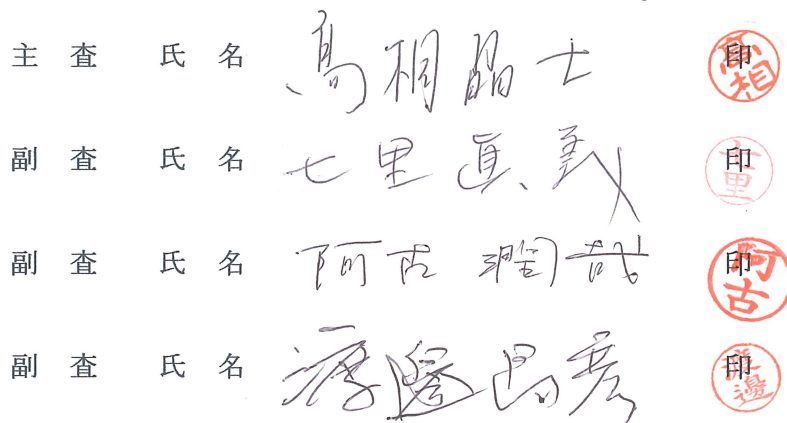 主査 氏名 高相晶士 印 高相
副査 氏名 七里眞義 印 七里
副査 氏名 阿古潤哉 印 阿古
副査 氏名 渡邊昌彦 印 渡邊